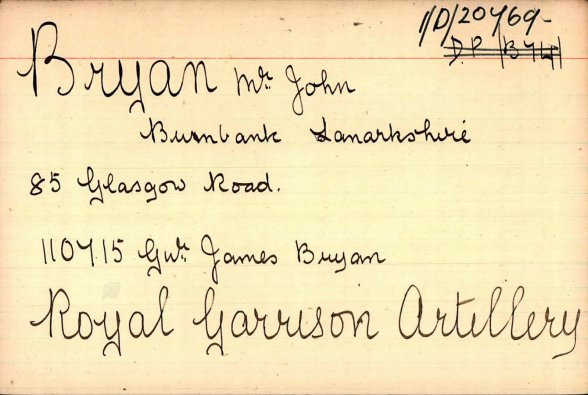 1/D/20769-
D.P. B 74
Bryan Mr. John
Burnbank Lanarkshire
85 Glasgow Road.
110715 Gnr. James Bryan
Royal Garrison Artillery